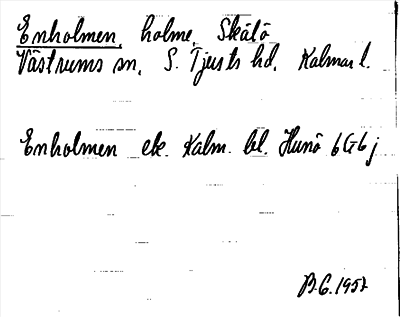 Enholmen, holme, Skälö
Västrums sn, S. Tjusts hd, Kalmar l.
Enholmen ek. Kalm. bl. Hunö 6G6j
B.G. 1957